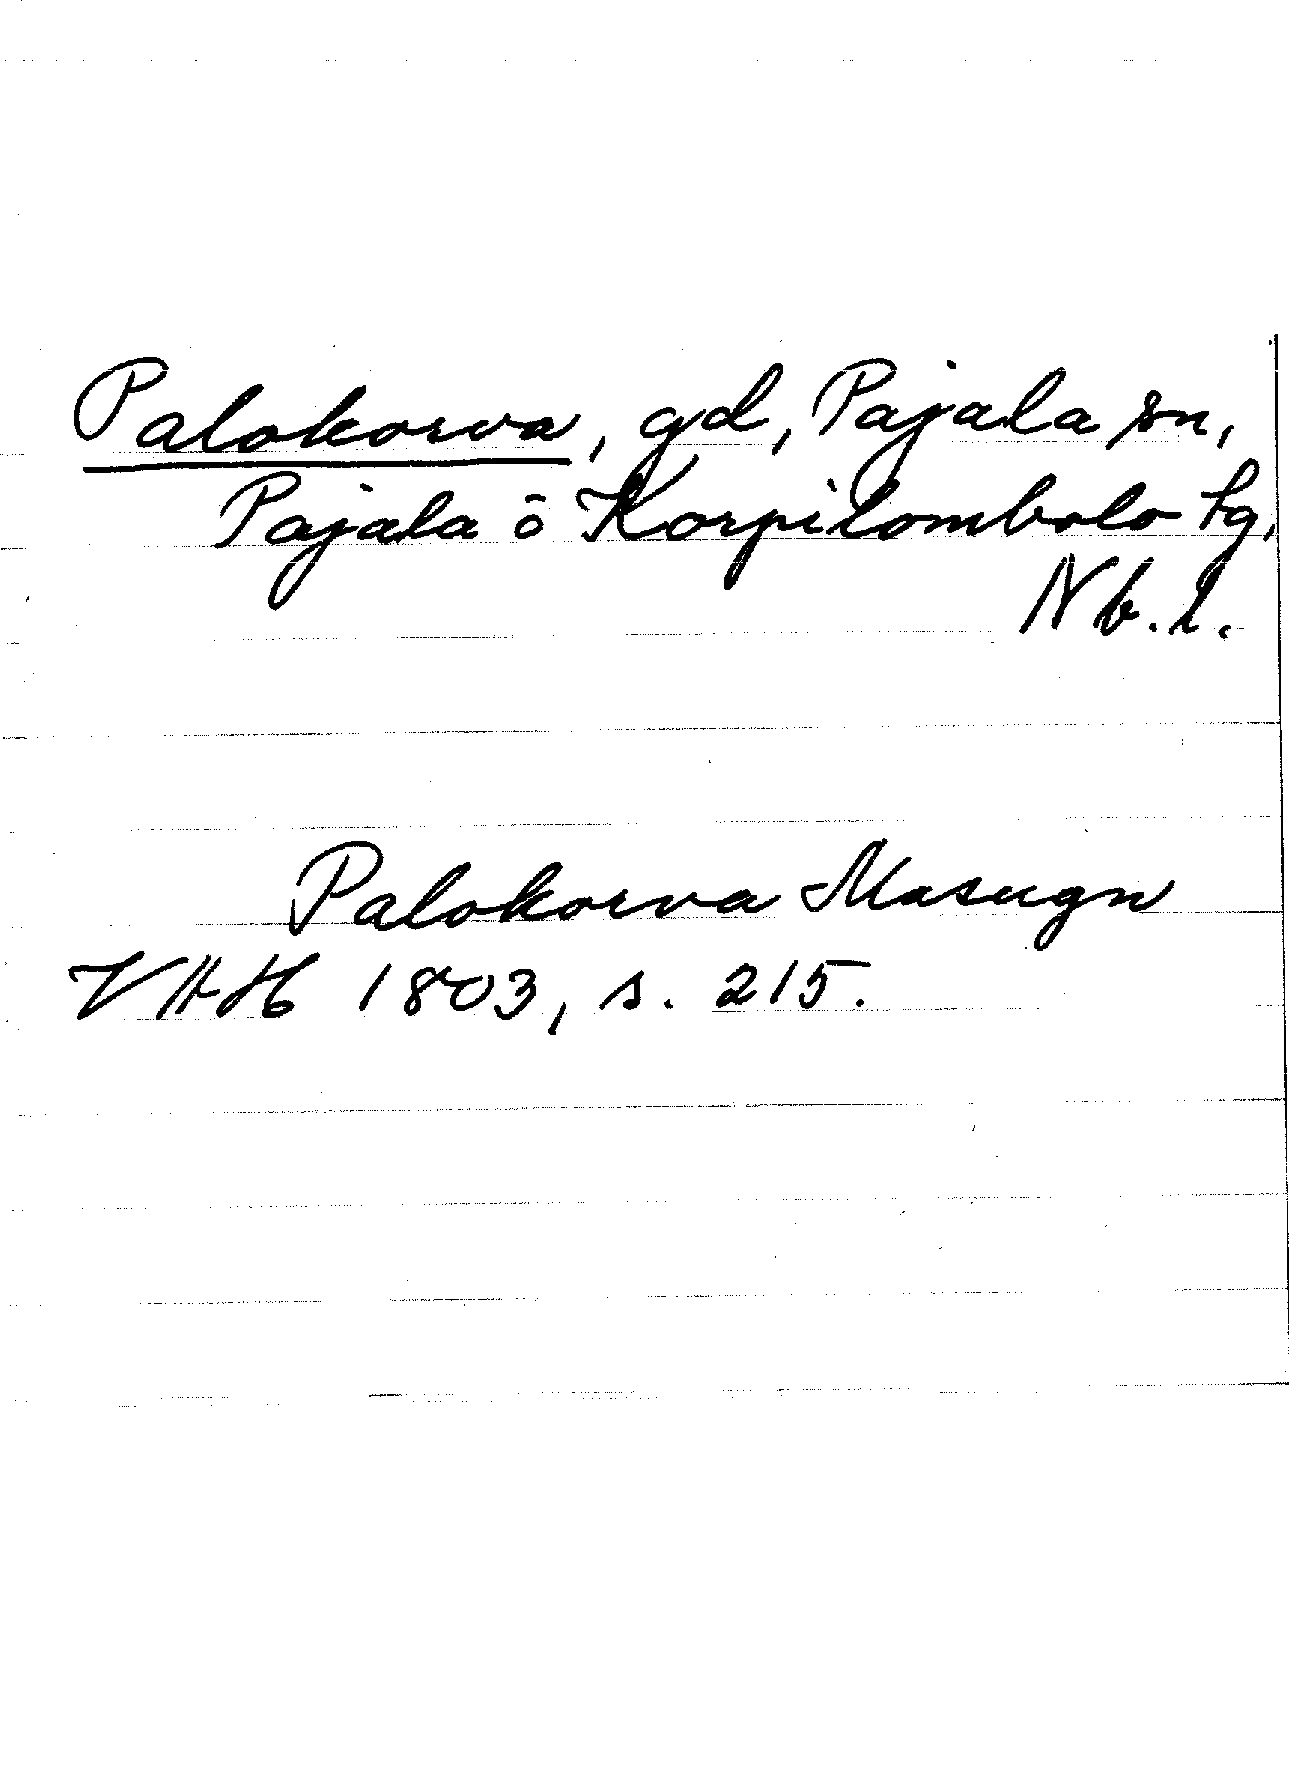 Palokorva, gd, Pajala sn,
Pajala o Korpilombolo tg,
Nb.l.
Palokorva Masugn
VAH 1803, s. 215.